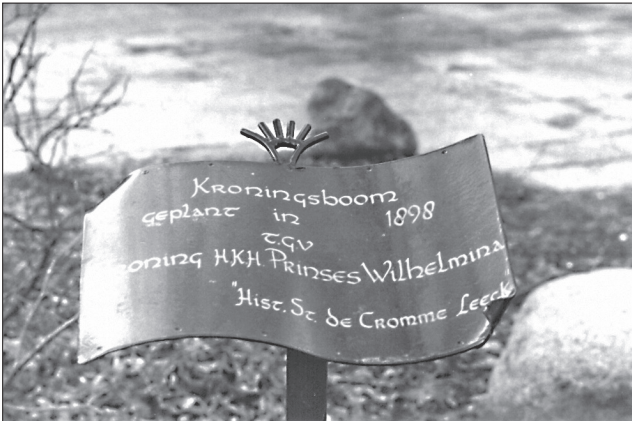 Kroningsboom
geplant in 1898
t.g.v
Kroning H.K.H. Prinses Wilhelmina
"Hist. St. de Cromme Leeck"